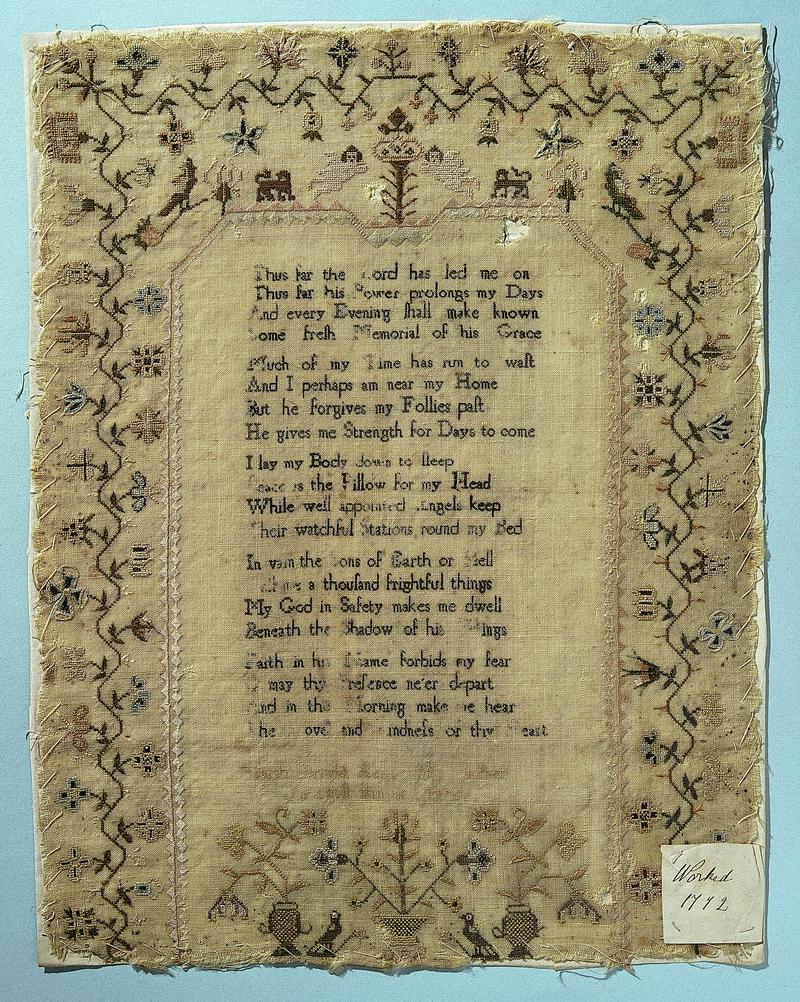 Thus far the Lord has led me on
Thus far his Power prolongs my Days
And every Evening ſhall make known
Some freſh Memorial of his Grace
Much of my Time has run to waſt
And I perhaps am near my Home
But he forgives my Follies paſt
He gives me Strength for Days to come
I lay my Body down to ſleep
Peace is the Pillow for my Head
While well appointed Angels keep
Their watchful Stations round my Bed
In vain the Sons of Earth or Hell
a thouſand frightful things
My God in Safety makes me dwell
Beneath the Shadow of his Wings
Faith in his Name forbids my fear
O may thy Preſence ne'er depart
And in the Morning make me hear
The Love and Kindneſs of thy Heart
Worked
1772